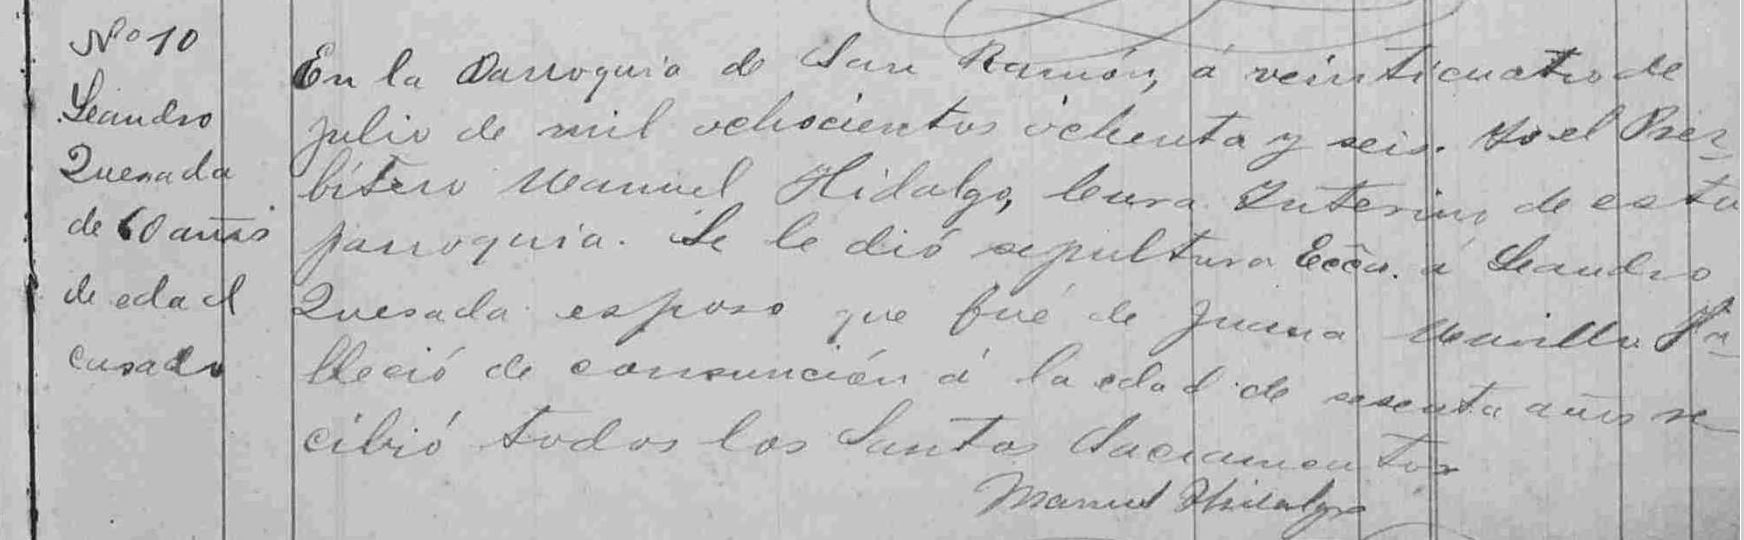 Nº 10
Leandro
Quesada
de 60 años
de edad
casado
En la Parroquia de San Ramón, á veinticuatro de
julio de mil ochocientos ochenta y seis. Yo el Pres-
bítero Manuel Hidalgo, Cura Interino de esta
parroquia. Se le dió sepultura Ecca. á Leandro
Quesada esposo que fué de Juana Murillo Fa-
lleció de consunción á la edad de sesenta años re-
cibió todos los Santos Sacramentos
Manuel Hidalgo